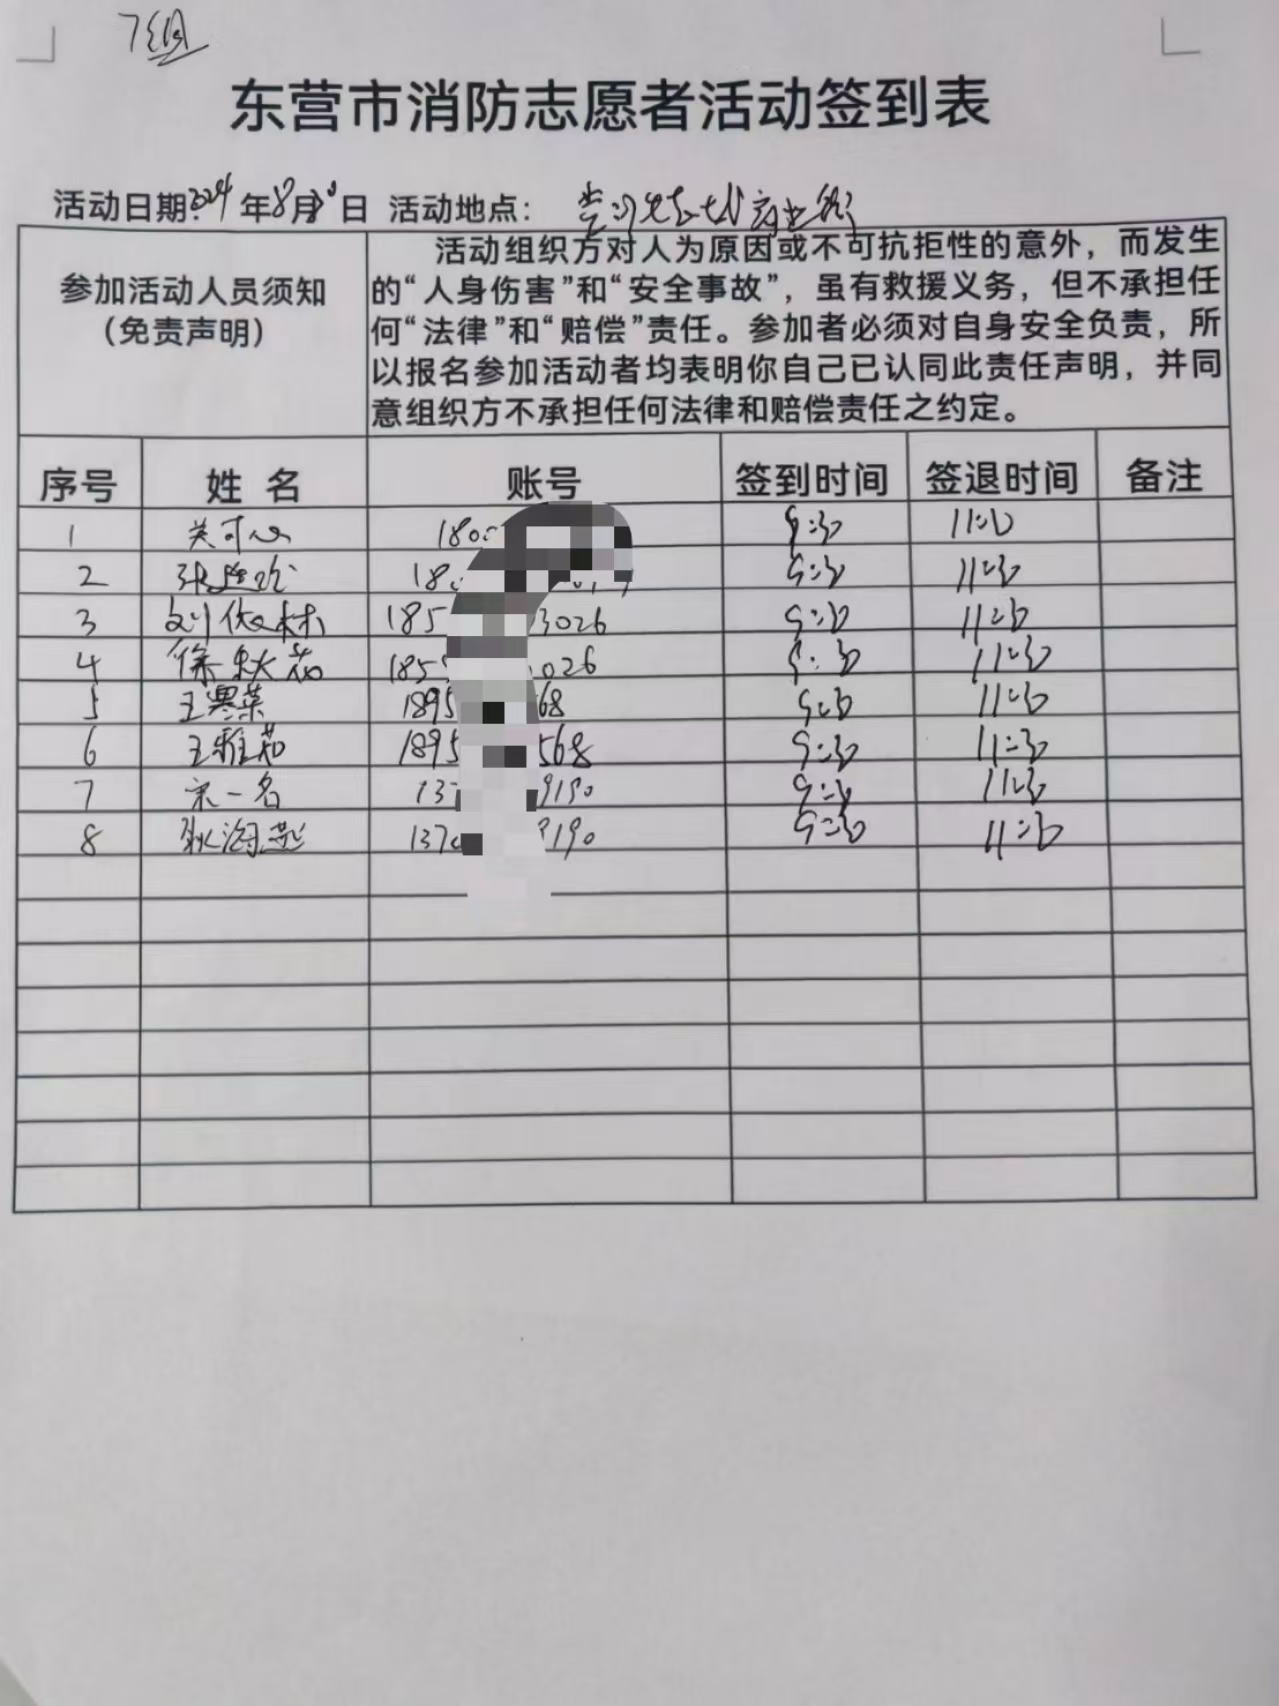 7组
东营市消防志愿者活动签到表
活动日期:2024年8月30日 活动地点:
参加活动人员须知
（免责声明）
活动组织方对人为原因或不可抗拒性的意外，而发生
的“人身伤害”和“安全事故”，虽有救援义务，但不承担任
何“法律”和“赔偿”责任。参加者必须对自身安全负责，所
以报名参加活动者均表明你自己已认同此责任声明，并同
意组织方不承担任何法律和赔偿责任之约定。
序号 姓 名 账号 签到时间 签退时间 备注
1 关可心 180 9:30 11:30
2 18 9:30 11:30
3 刘依林 185 3026 9:30 11:30
4 徐秋茹 185 026 9:30 11:30
5 王寒菜 1895 68 9:30 11:30
6 王雅茹 1895 568 9:30 11:30
7 宋一名 137 9190 9:30 11:30
8 耿海燕 137 9190 9:30 11:30